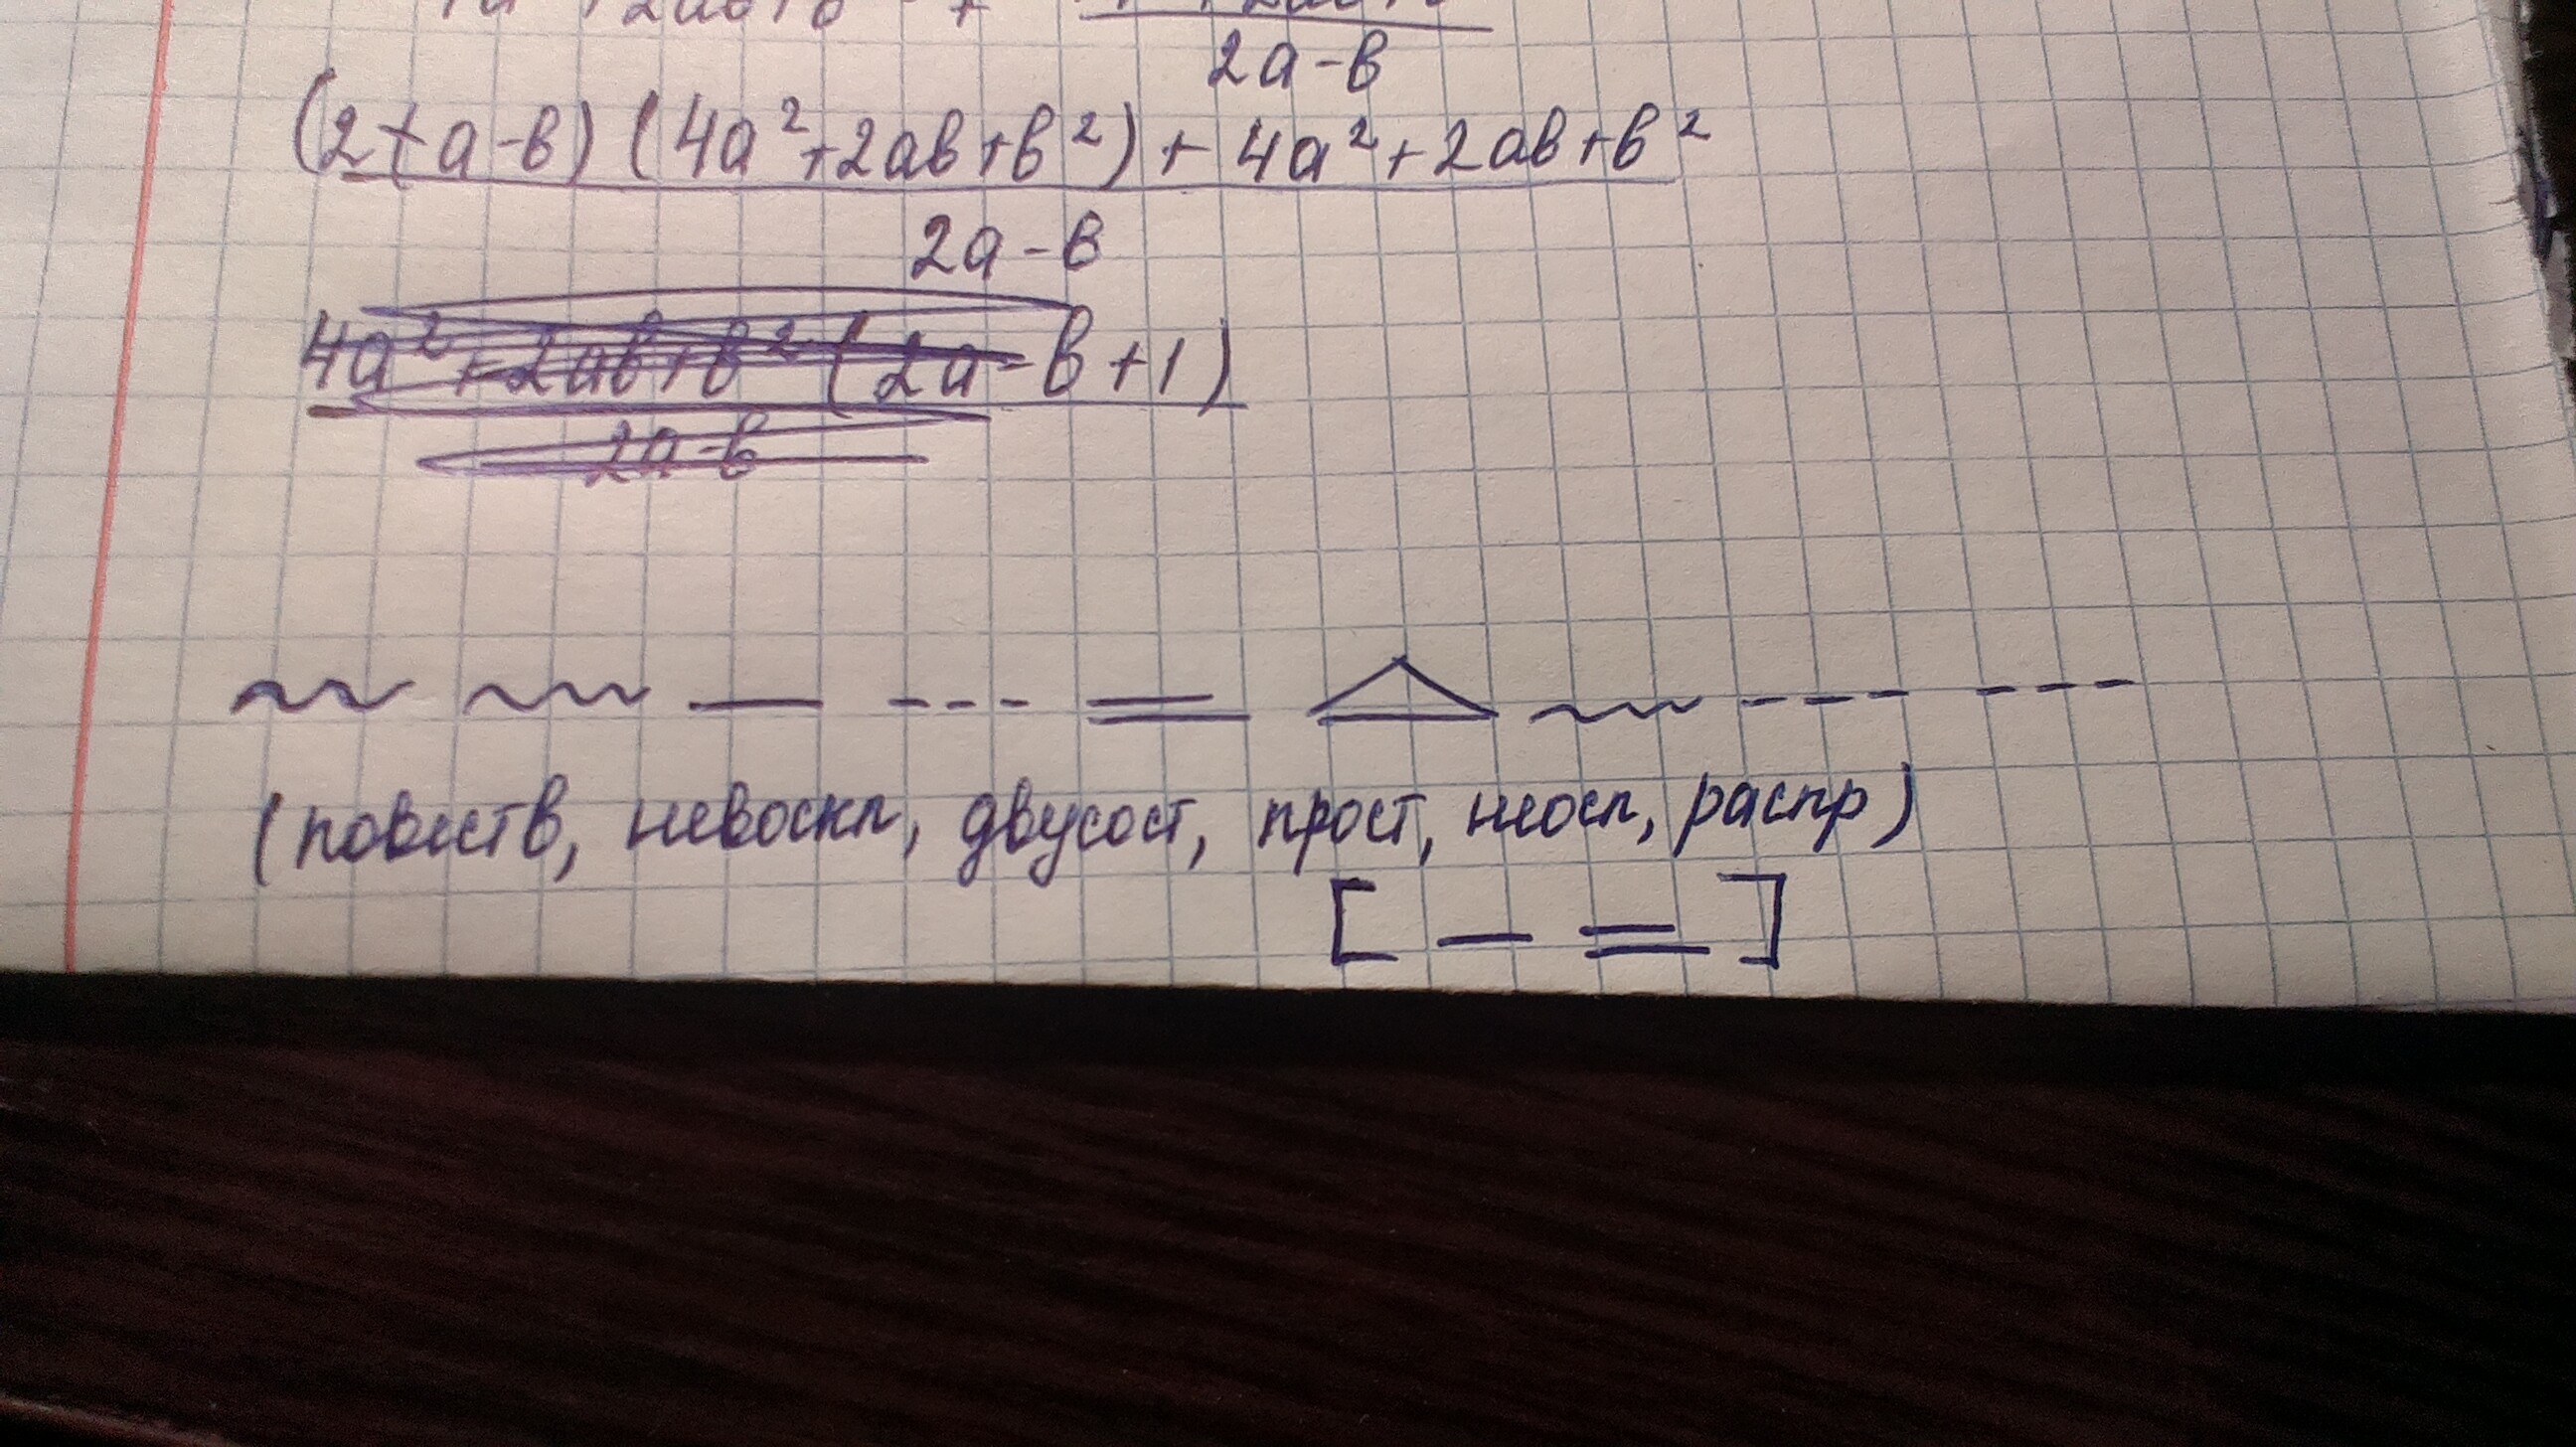 2a-в
(2+a-в)(4a²+2aв+в²)+4a²+2aв+в²
2a-в
4a²+2aв+в²(2a-в+1)
2a-в
(повеств, невоскл, двусост, прост, неосл, распр)
[ — = ]